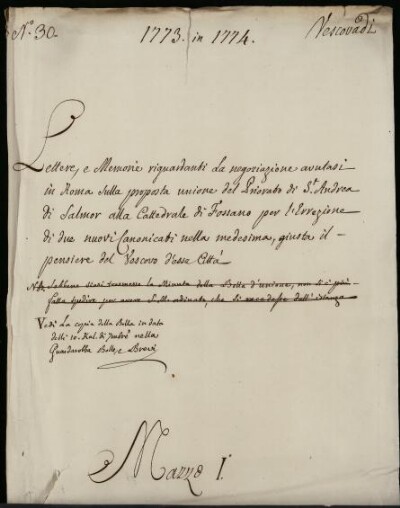 N.° 30.
1773. in 1774.
Vescovadi
Lettere, e Memorie riguardanti la negoziazione avutasi
in Roma sulla proposta unione del Priorato di S.t Andrea
di Salmor alla Cattedrale di Fossano per l'Errezione
di due nuovi Canonicati nella medesima, giusta il
pensiere del Vescovo d'essa Città
NB. Sebbene siasi trasmessa la Minuta della Bolla d'unione, non si è poi
fatta spedire per essersi ordinato, che si recedesse dall'istanza
Vedi La copia della Bolla in data
delli 10. Kal. di
nella
Guardarobba Bolle, e Brevi
Mazzo I.